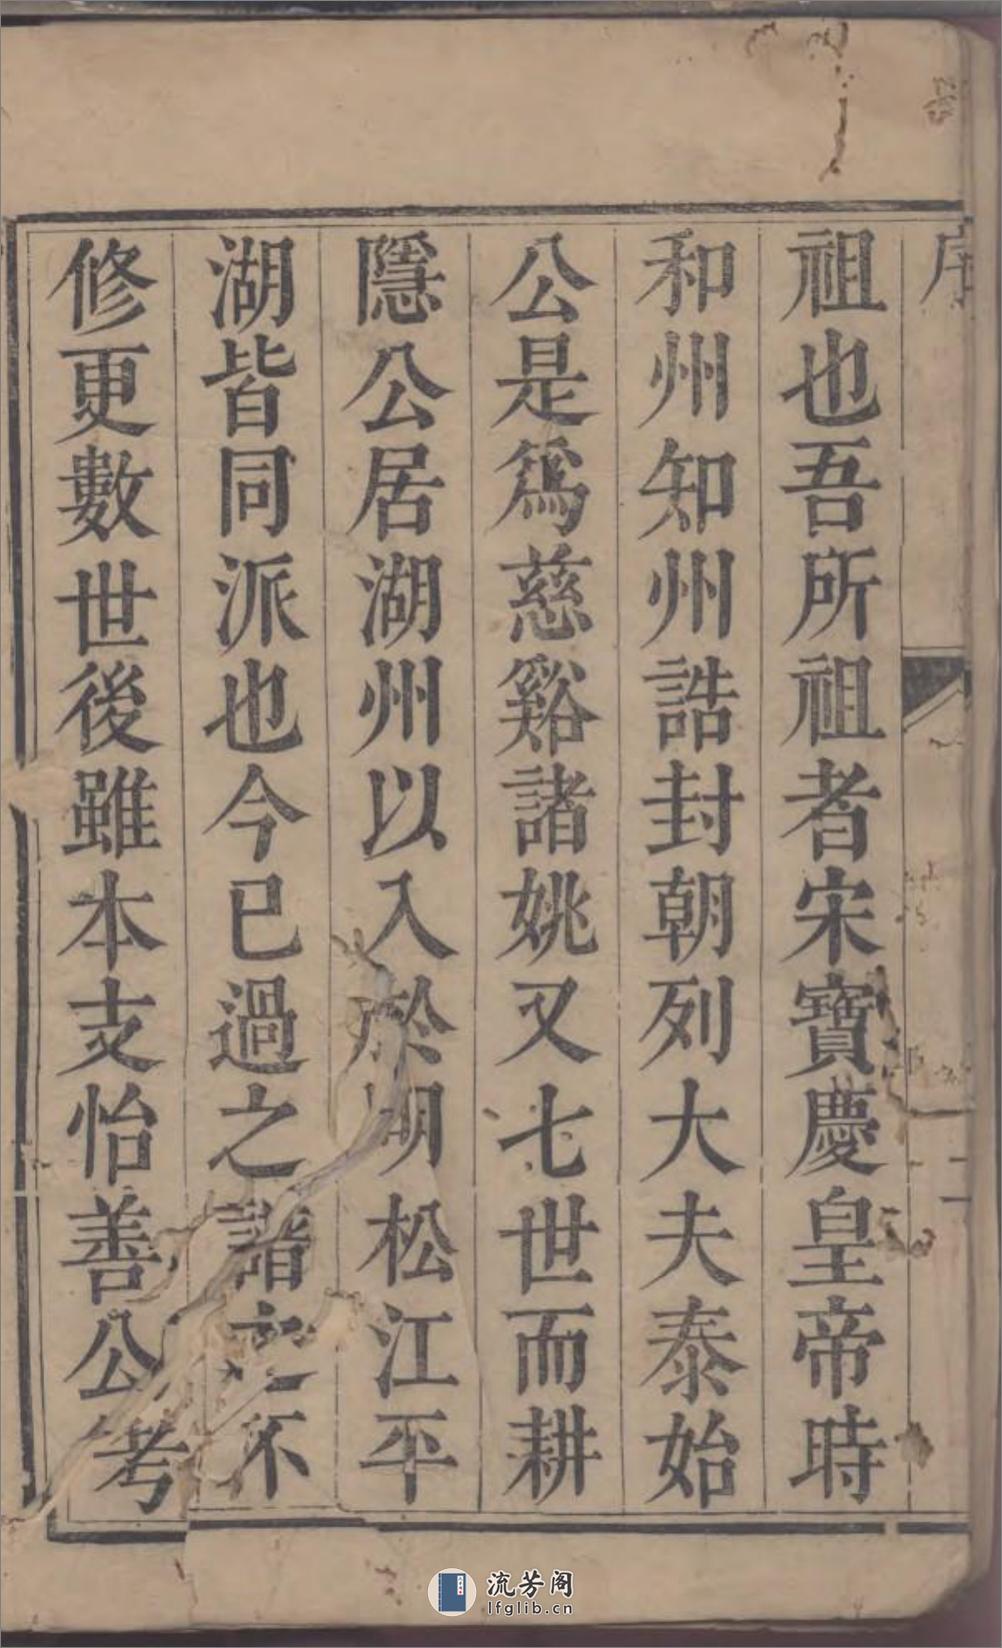 序
二
祖也吾所祖者宋寶慶皇帝時
和州知州誥封朝列大夫泰始
公是爲慈谿諸姚又七世而耕
隱公居湖州以入於明松江平
湖皆同派也今已過之譜之不
修更數世後雖本支怡善公考
流芳阁
lfglib.cn